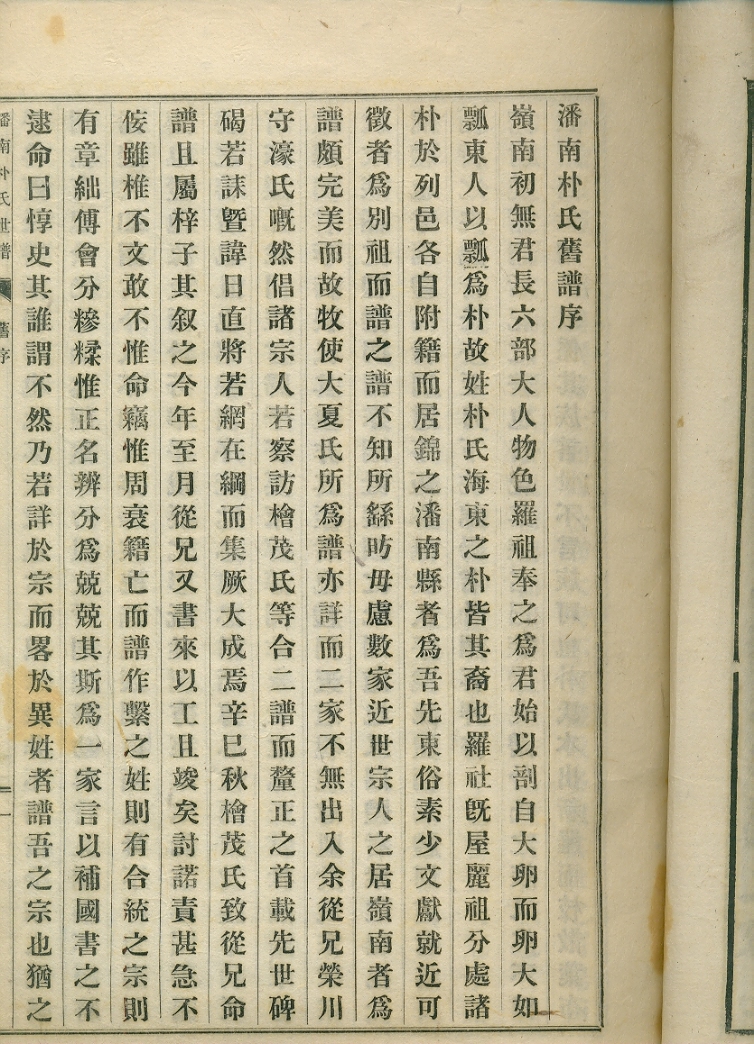 潘南朴氏舊譜序
嶺南初無君長六部大人物色羅祖奉之爲君始以剖自大卵而卵大如
瓢東人以瓢爲朴故姓朴氏海東之朴皆其裔也羅社旣屋麗祖分處諸
朴於列邑各自附籍而居錦之潘南縣者爲吾先東俗素少文獻就近可
徵者爲別祖而譜之譜不知所繇昉毋慮數家近世宗人之居嶺南者爲
譜頗完美而故牧使大夏氏所爲譜亦詳而二家不無出入余從兄榮川
守濠氏嘅然倡諸宗人若察訪檜茂氏等合二譜而釐正之首載先世碑
碣若誄曁諱日直將若網在綱而集厥大成焉辛巳秋檜茂氏致從兄命
譜且屬梓子其叙之今年至月從兄又書來以工且竣矣討諾責甚急不
侫雖椎不文敢不惟命竊惟周衰籍亡而譜作繫之姓則有合統之宗則
有章絀傅會分糝糅惟正名辨分爲兢兢其斯爲一家言以補國書之不
逮命曰惇史其誰謂不然乃若詳於宗而畧於異姓者譜吾之宗也猶之
潘南朴氏世譜
舊序
一